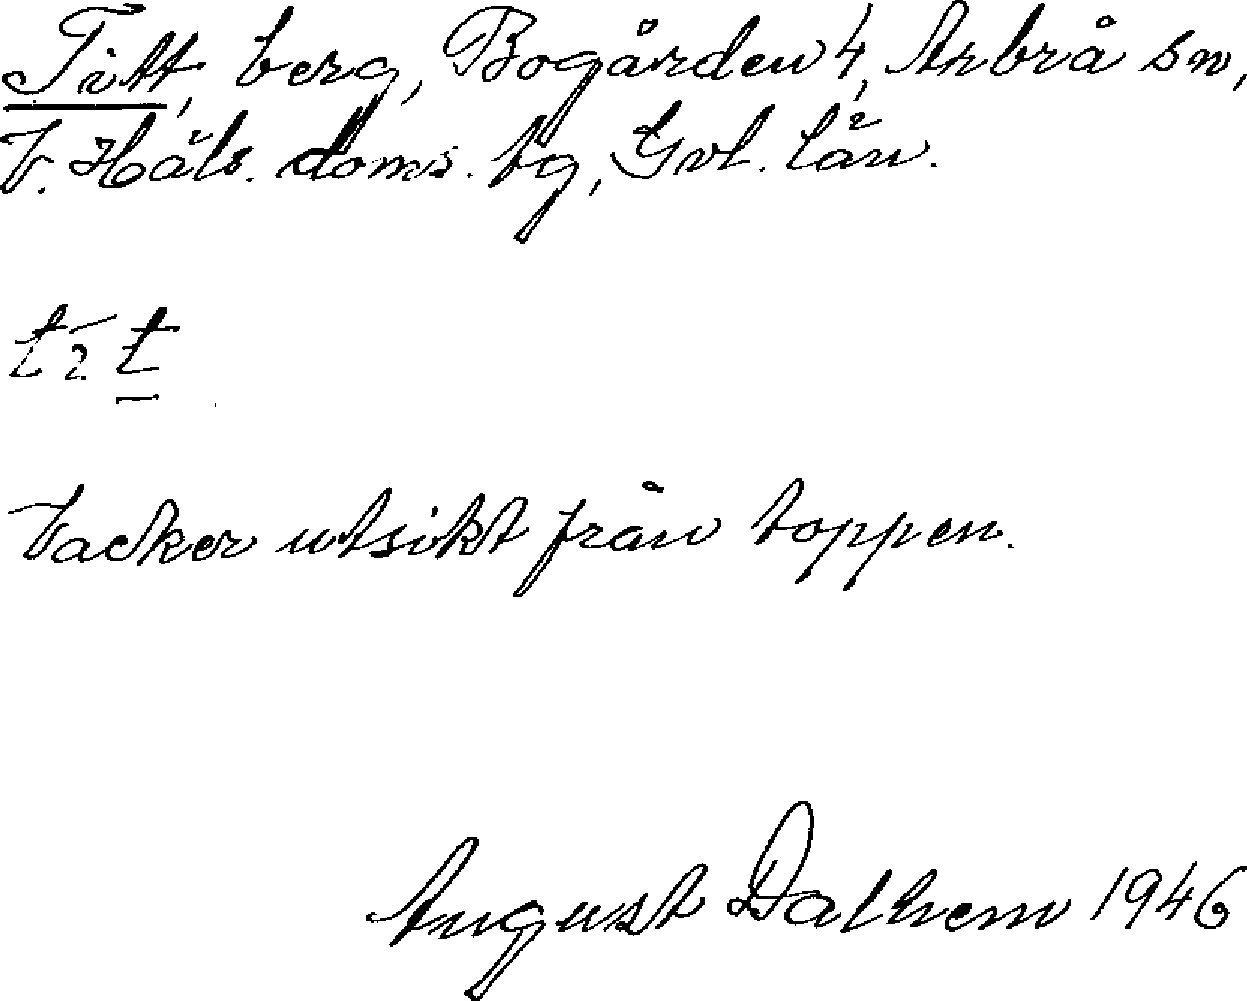 Titt, berg, Bogården 4, Arbrå sn,
V. Häls. doms. tg, Gvl. län.
Vacker utsikt från toppen.
August Dalhem 1946